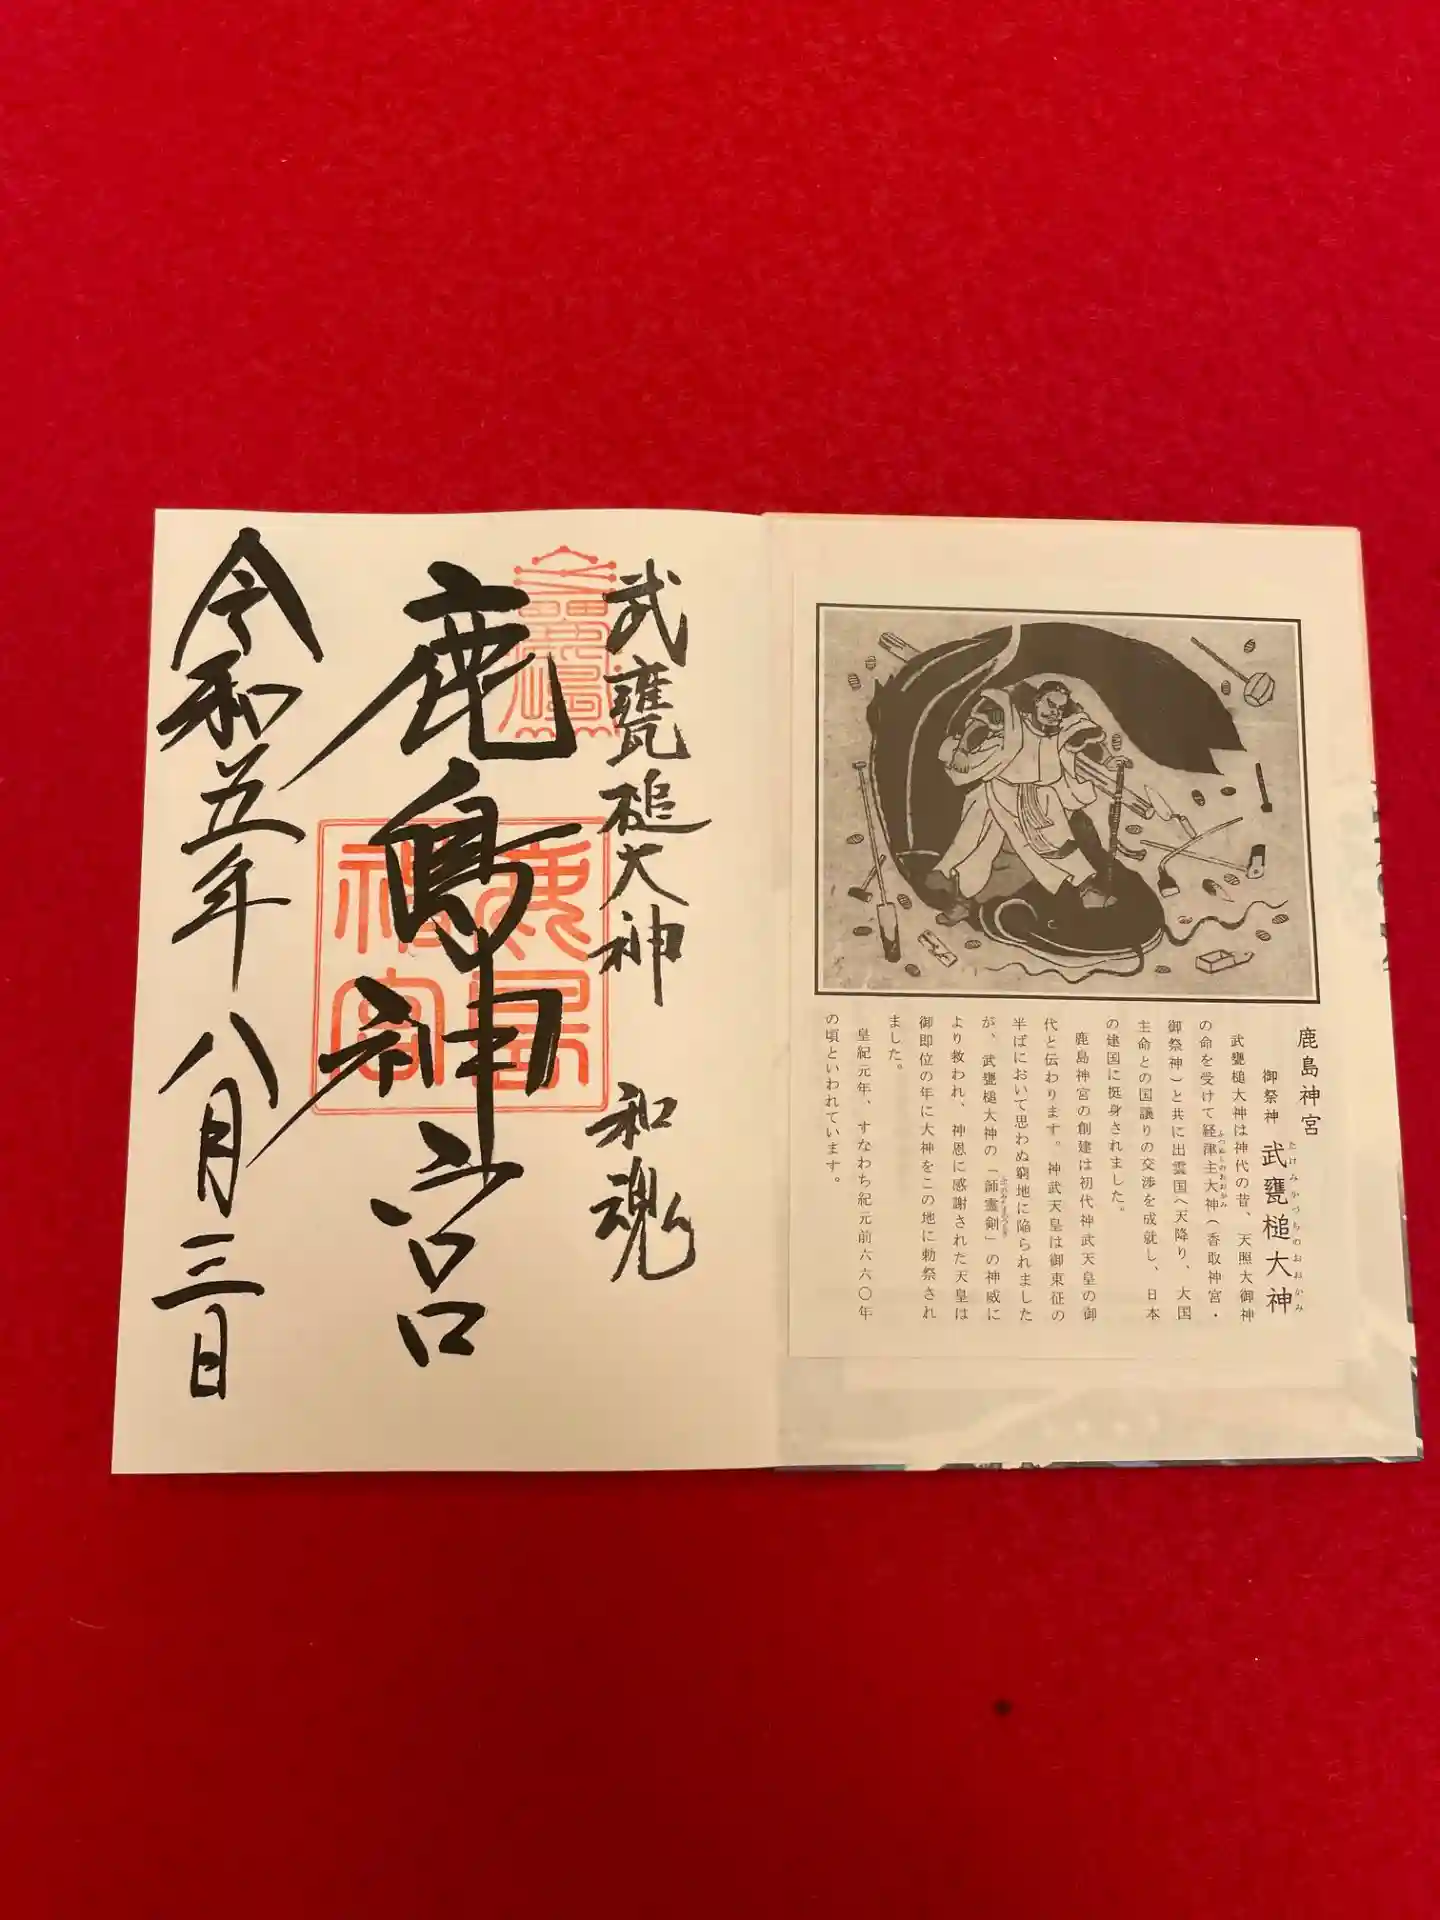 鹿島神宮
御祭神 武甕槌大神
たけみかづちのおおかみ
武甕槌大神は神代の昔、天照大御神
の命を受けて経津主大神(香取神宮・
ふつぬしのおおかみ
御祭神)と共に出雲国へ天降り、大国
主命との国譲りの交渉を成就し、日本
の建国に挺身されました。
鹿島神宮の創建は初代神武天皇の御
代と伝わります。神武天皇は御東征の
半ばにおいて思わぬ窮地に陥られました
が、武甕槌大神の「韴霊剣」の神威に
ふつのみたまのつるぎ
より救われ、神恩に感謝された天皇は
御即位の年に大神をこの地に勅祭され
ました。
皇紀元年、すなわち紀元前六六〇年
の頃といわれています。
武甕槌大神 和魂
鹿島神宮
鹿島
神宮
令和五年八月三日